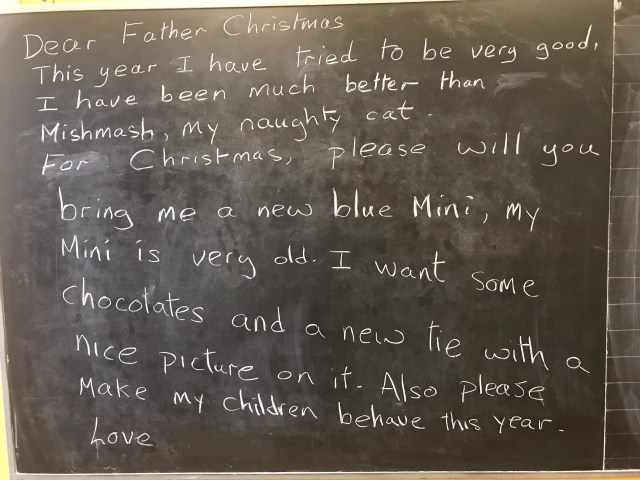 Dear Father Christmas
This year I have tried to be very good,
I have been much better than
Mishmash, my naughty cat.
For Christmas, please will you
bring me a new blue Mini, my
Mini is very old. I want some
chocolates and a new tie with a
nice picture on it. Also please
make my children behave this year.
Love